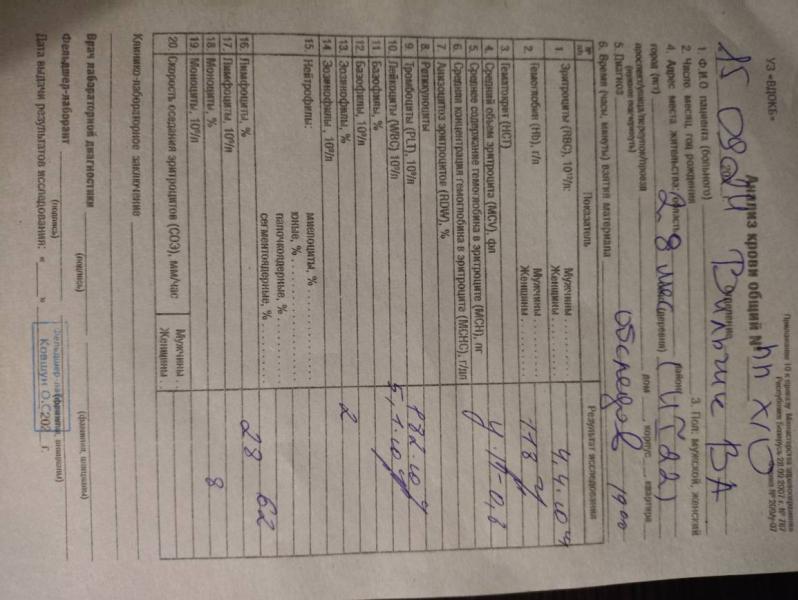 УЗ «ВДОКБ»
Приложение 10 к приказу Министерства здравоохранения
Республики Беларусь 28.09.2007 г. № 787
Анализ крови общий №
15 09 21
1. Ф.И.О. пациента (больного)
2. Число, месяц, год рождения
3. Пол: мужской, женский
4. Адрес места жительства: область район
город (пгт) (деревня)
проспект/улица/переулок/проезд дом корпус квартира
(нужное подчеркнуть)
5. Диагноз
6. Время (часы, минуты) взятия материала 19 00
№ Показатель Результат исследования
1. Эритроциты (RBC), 10¹²/л: Мужчины
Женщины 4,4·10
2. Гемоглобин (Hb), г/л Мужчины
Женщины 118
3. Гематокрит (HCT)
4. Средний объем эритроцита (MCV), фл
5. Среднее содержание гемоглобина в эритроците (MCH), пг
6. Средняя концентрация гемоглобина в эритроците (MCHC), г/дл
7. Анизоцитоз эритроцитов (RDW), %
8. Ретикулоциты
9. Тромбоциты (PLT), 10⁹/л
10. Лейкоциты (WBC) 10⁹/л 5,1·10
11. Базофилы, %
12. Базофилы, 10⁹/л
13. Эозинофилы, % 2
14. Эозинофилы, 10⁹/л
15. Нейтрофилы: миелоциты, %
юные, %
палочкоядерные, %
сегментоядерные, % 62
16. Лимфоциты, % 28
17. Лимфоциты, 10⁹/л
18. Моноциты, % 8
19. Моноциты, 10⁹/л
20. Скорость оседания эритроцитов (СОЭ), мм/час Мужчины
Женщины
Клинико-лабораторное заключение
Врач лабораторной диагностики
(подпись) (фамилия, инициалы)
Фельдшер-лаборант
(подпись)
Фельдшер-лаборант
Ковшун О.С.
Дата выдачи результатов исследования: « » 202 г.